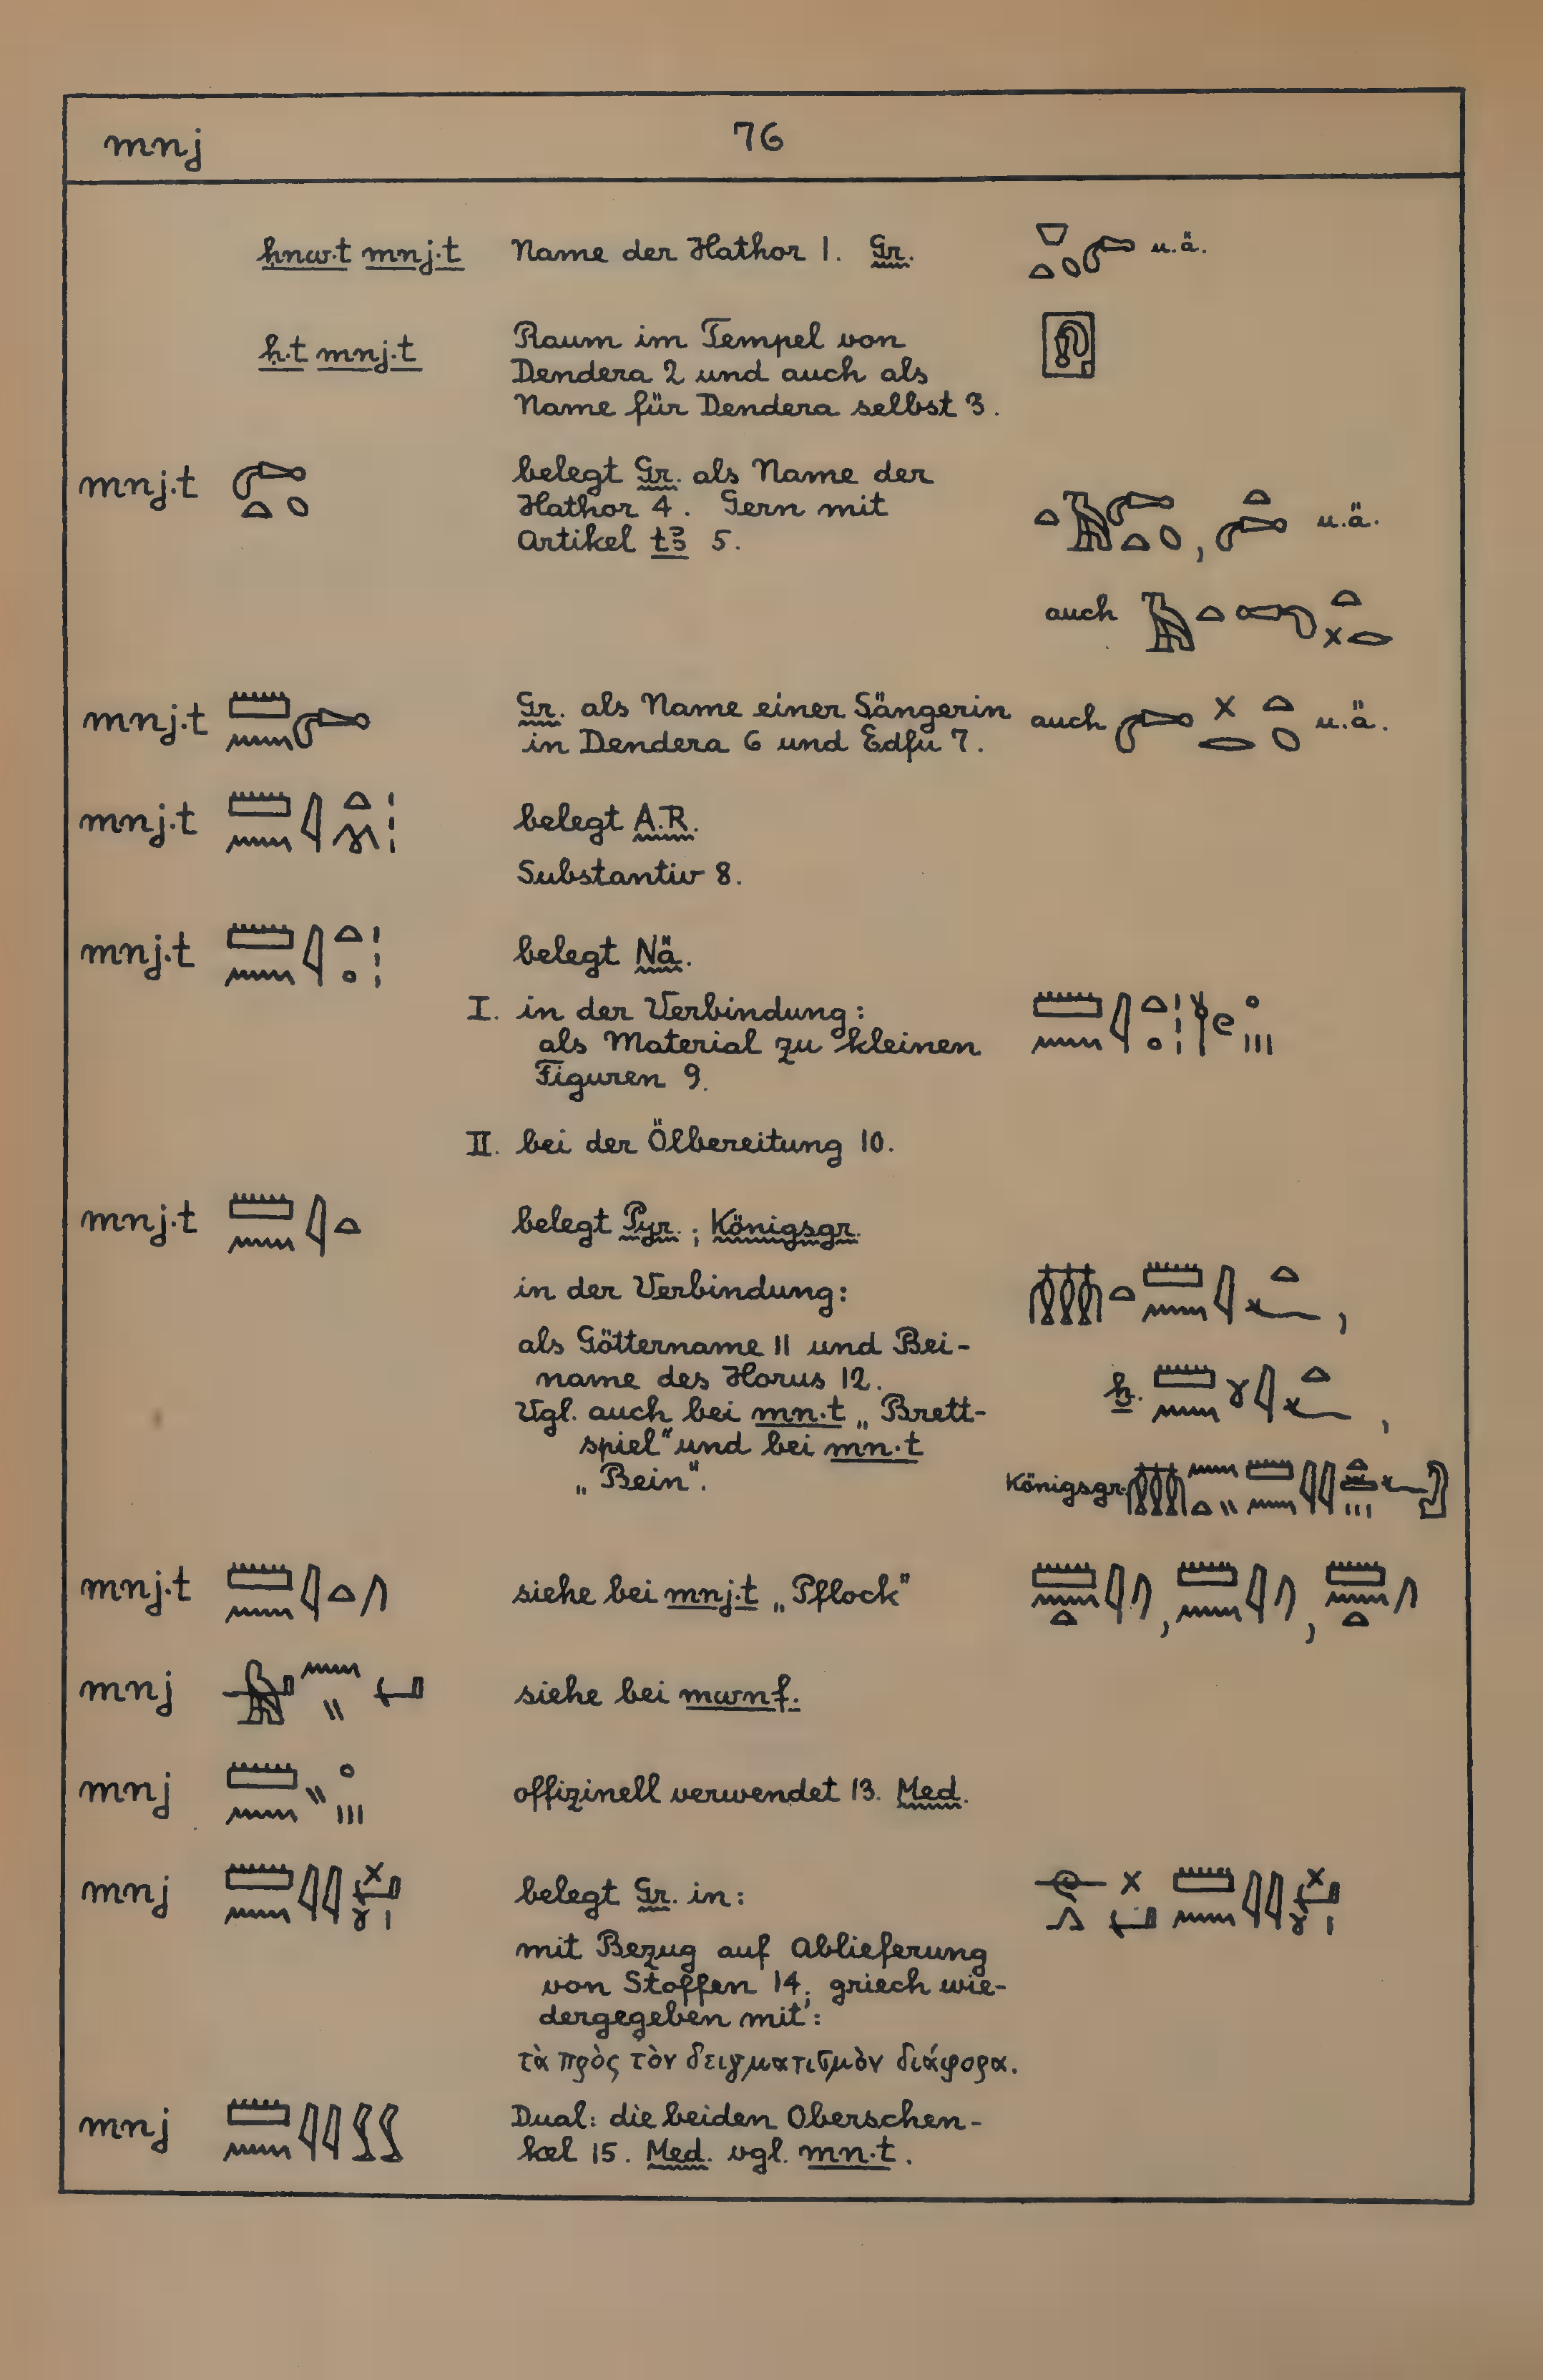 mnj 76
ḥnw.t mnj.t Name der Hathor 1. Gr. u.ä.
ḥ.t mnj.t Raum im Tempel von
Dendera 2 und auch als
Name für Dendera selbst 3.
mnj.t belegt Gr. als Name der
Hathor 4. Gern mit
Artikel tꜣ 5. , u.ä.
auch
mnj.t Gr. als Name einer Sängerin auch u.ä.
in Dendera 6 und Edfu 7.
mnj.t belegt A.R.
Substantiv 8.
mnj.t belegt Nä.
I. in der Verbindung:
als Material zu kleinen
Figuren 9.
II. bei der Ölbereitung 10.
mnj.t belegt Pyr.; Königsgr.
in der Verbindung: ,
als Göttername 11 und Bei-
name des Horus 12.
Vgl. auch bei mn.t „Brett-
spiel" und bei mn.t
„Bein". Königsgr.
mnj.t siehe bei mnj.t „Pflock" , ,
mnj siehe bei mwnf.
mnj offizinell verwendet 13. Med.
mnj belegt Gr. in:
mit Bezug auf Ablieferung
von Stoffen 14; griech wie-
dergegeben mit:
τὰ πρὸς τὸν δειγματισμὸν διάφορα.
mnj Dual: die beiden Oberschen-
kel 15. Med. vgl. mn.t.